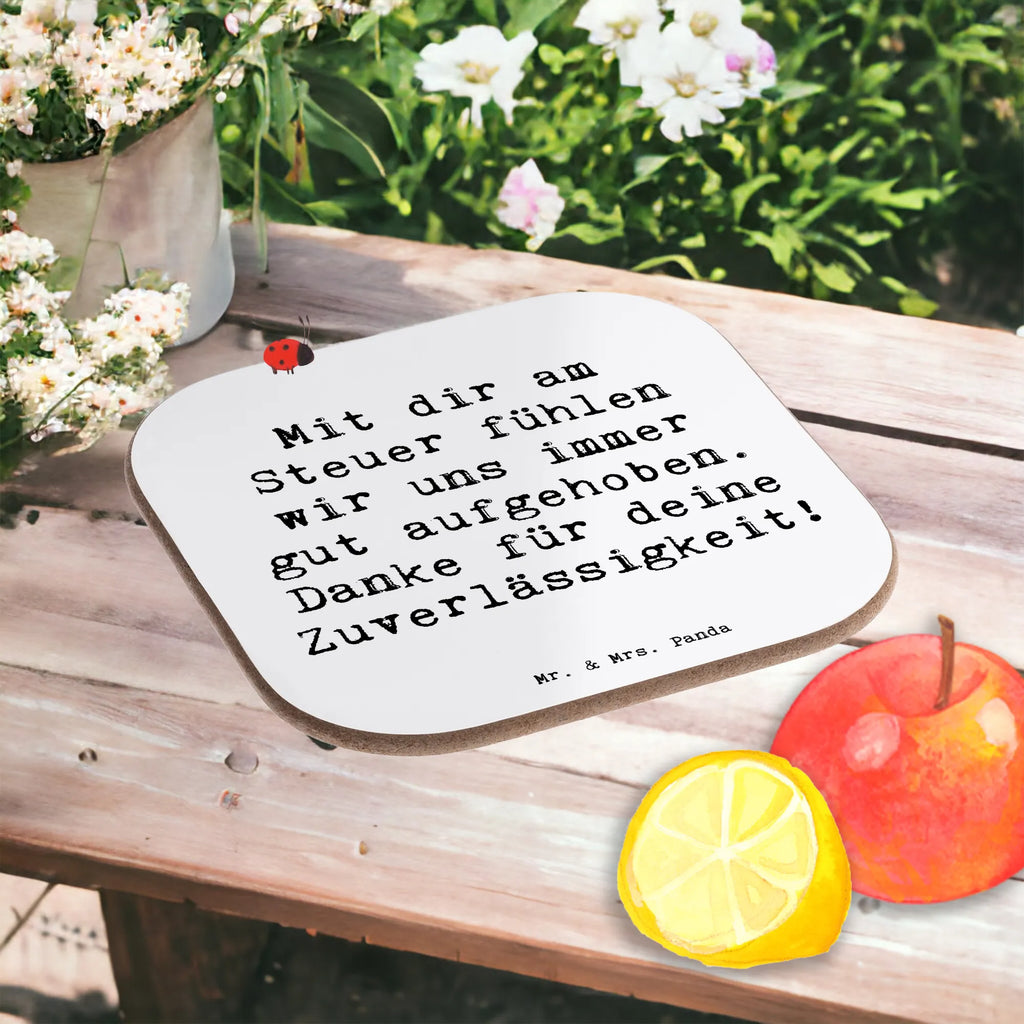 Mit dir am
Steuer fühlen
wir uns immer
gut aufgehoben.
Danke für deine
Zuverlässigkeit!
Mr. & Mrs. Panda